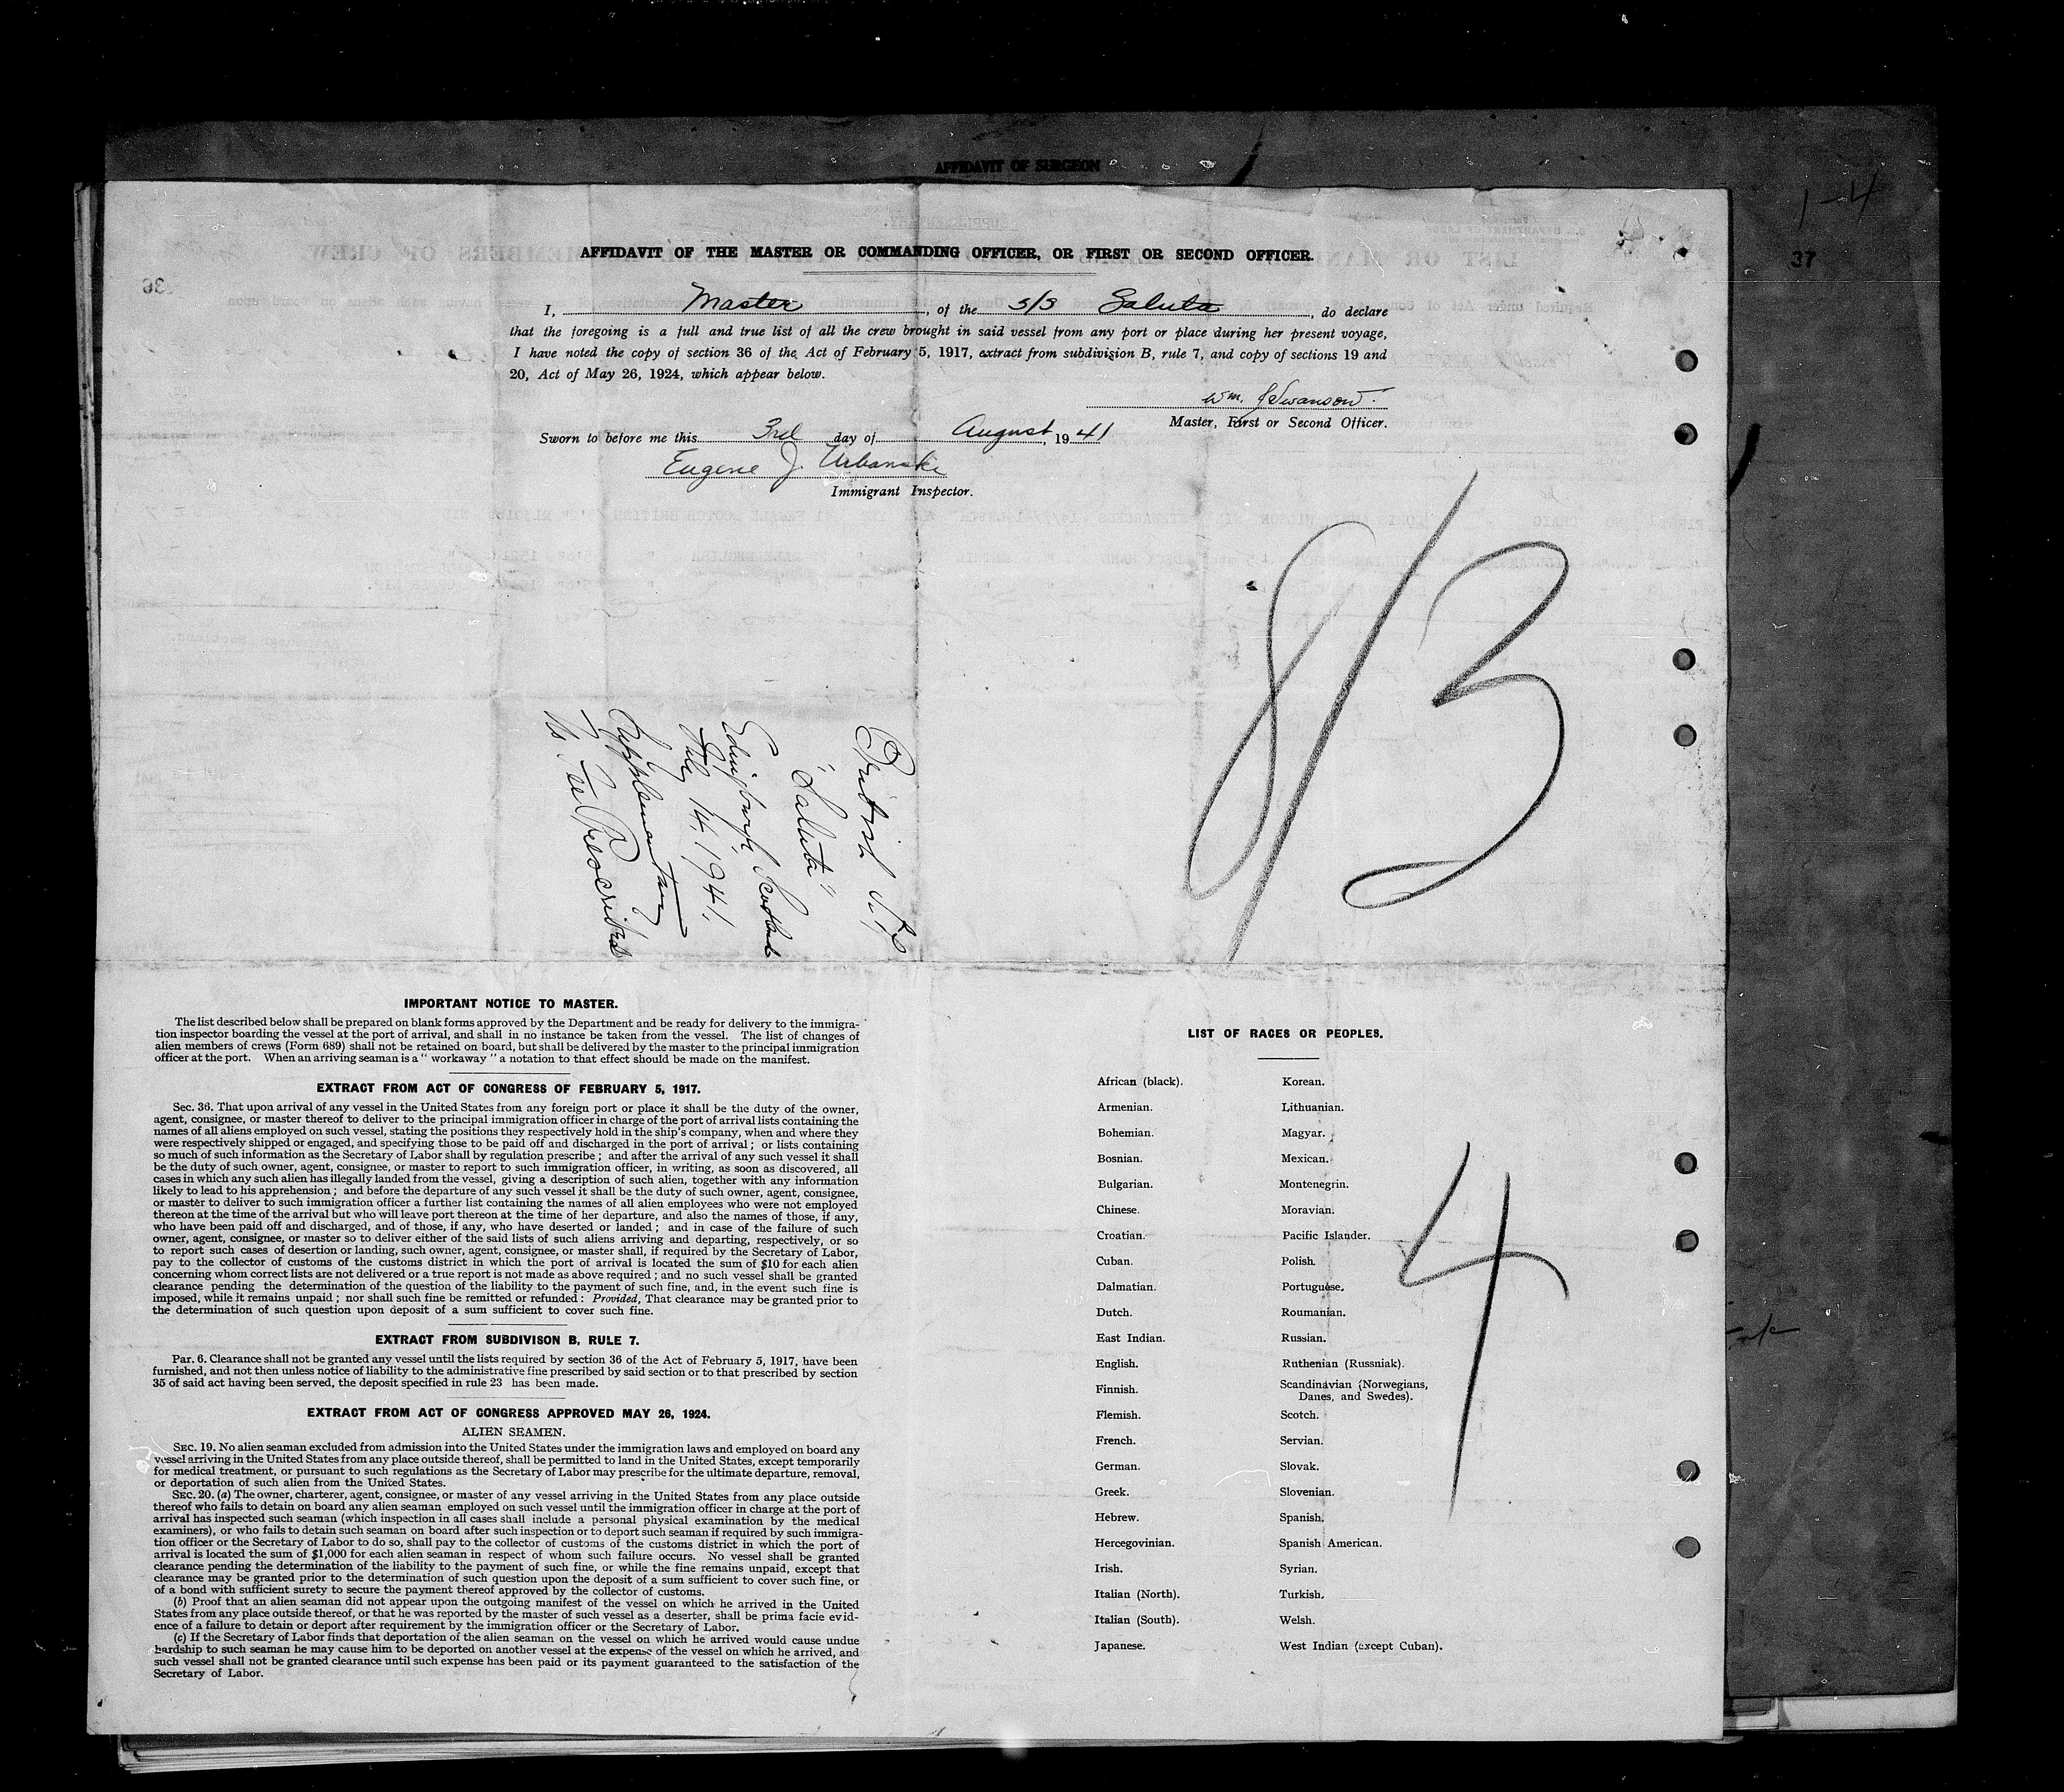 AFFIDAVIT OF SURGEON
1-4
37
AFFIDAVIT OF THE MASTER OR COMMANDING OFFICER, OR FIRST OR SECOND OFFICER.
I, Master, of the S/S Saluta, do declare
that the foregoing is a full and true list of all the crew brought in said vessel from any port or place during her present voyage,
I have noted the copy of section 36 of the Act of February 5, 1917, extract from subdivision B, rule 7, and copy of sections 19 and
20, Act of May 26, 1924, which appear below.
Wm. J Swanson.
Master, First or Second Officer.
Sworn to before me this 3rd day of August, 1941
Eugene J. Urbanski
Immigrant Inspector.
8/3
British
"Saluta"
Edinburgh Scotland
July 14, 1941.
Supplementary
No Fee Prescribed
IMPORTANT NOTICE TO MASTER.
The list described below shall be prepared on blank forms approved by the Department and be ready for delivery to the immigra-
tion inspector boarding the vessel at the port of arrival, and shall in no instance be taken from the vessel. The list of changes of
alien members of crews (Form 689) shall not be retained on board, but shall be delivered by the master to the principal immigration
officer at the port. When an arriving seaman is a " workaway " a notation to that effect should be made on the manifest.
EXTRACT FROM ACT OF CONGRESS OF FEBRUARY 5, 1917.
Sec. 36. That upon arrival of any vessel in the United States from any foreign port or place it shall be the duty of the owner,
agent, consignee, or master thereof to deliver to the principal immigration officer in charge of the port of arrival lists containing the
names of all aliens employed on such vessel, stating the positions they respectively hold in the ship's company, when and where they
were respectively shipped or engaged, and specifying those to be paid off and discharged in the port of arrival ; or lists containing
so much of such information as the Secretary of Labor shall by regulation prescribe ; and after the arrival of any such vessel it shall
be the duty of such owner, agent, consignee, or master to report to such immigration officer, in writing, as soon as discovered, all
cases in which any such alien has illegally landed from the vessel, giving a description of such alien, together with any information
likely to lead to his apprehension ; and before the departure of any such vessel it shall be the duty of such owner, agent, consignee,
or master to deliver to such immigration officer a further list containing the names of all alien employees who were not employed
thereon at the time of the arrival but who will leave port thereon at the time of her departure, and also the names of those, if any,
who have been paid off and discharged, and of those, if any, who have deserted or landed ; and in case of the failure of such
owner, agent, consignee, or master so to deliver either of the said lists of such aliens arriving and departing, respectively, or so
to report such cases of desertion or landing, such owner, agent, consignee, or master shall, if required by the Secretary of Labor,
pay to the collector of customs of the customs district in which the port of arrival is located the sum of $10 for each alien
concerning whom correct lists are not delivered or a true report is not made as above required ; and no such vessel shall be granted
clearance pending the determination of the question of the liability to the payment of such fine, and, in the event such fine is
imposed, while it remains unpaid ; nor shall such fine be remitted or refunded : Provided, That clearance may be granted prior to
the determination of such question upon deposit of a sum sufficient to cover such fine.
EXTRACT FROM SUBDIVISON B, RULE 7.
Par. 6. Clearance shall not be granted any vessel until the lists required by section 36 of the Act of February 5, 1917, have been
furnished, and not then unless notice of liability to the administrative fine prescribed by said section or to that prescribed by section
35 of said act having been served, the deposit specified in rule 23 has been made.
EXTRACT FROM ACT OF CONGRESS APPROVED MAY 26, 1924.
ALIEN SEAMEN.
SEC. 19. No alien seaman excluded from admission into the United States under the immigration laws and employed on board any
vessel arriving in the United States from any place outside thereof, shall be permitted to land in the United States, except temporarily
for medical treatment, or pursuant to such regulations as the Secretary of Labor may prescribe for the ultimate departure, removal,
or deportation of such alien from the United States.
SEC. 20. (a) The owner, charterer, agent, consignee, or master of any vessel arriving in the United States from any place outside
thereof who fails to detain on board any alien seaman employed on such vessel until the immigration officer in charge at the port of
arrival has inspected such seaman (which inspection in all cases shall include a personal physical examination by the medical
examiners), or who fails to detain such seaman on board after such inspection or to deport such seaman if required by such immigra-
tion officer or the Secretary of Labor to do so, shall pay to the collector of customs of the customs district in which the port of
arrival is located the sum of $1,000 for each alien seaman in respect of whom such failure occurs. No vessel shall be granted
clearance pending the determination of the liability to the payment of such fine, or while the fine remains unpaid, except that
clearance may be granted prior to the determination of such question upon the deposit of a sum sufficient to cover such fine, or
of a bond with sufficient surety to secure the payment thereof approved by the collector of customs.
(b) Proof that an alien seaman did not appear upon the outgoing manifest of the vessel on which he arrived in the United
States from any place outside thereof, or that he was reported by the master of such vessel as a deserter, shall be prima facie evid-
ence of a failure to detain or deport after requirement by the immigration officer or the Secretary of Labor.
(c) If the Secretary of Labor finds that deportation of the alien seaman on the vessel on which he arrived would cause undue
hardship to such seaman he may cause him to be deported on another vessel at the expense of the vessel on which he arrived, and
such vessel shall not be granted clearance until such expense has been paid or its payment guaranteed to the satisfaction of the
Secretary of Labor.
LIST OF RACES OR PEOPLES.
African (black). Korean.
Armenian. Lithuanian.
Bohemian. Magyar.
Bosnian. Mexican.
Bulgarian. Montenegrin.
Chinese. Moravian.
Croatian. Pacific Islander.
Cuban. Polish.
Dalmatian. Portuguese.
Dutch. Roumanian.
East Indian. Russian.
English. Ruthenian (Russniak).
Finnish. Scandinavian (Norwegians,
Danes, and Swedes).
Flemish. Scotch.
French. Servian.
German. Slovak.
Greek. Slovenian.
Hebrew. Spanish.
Hercegovinian. Spanish American.
Irish. Syrian.
Italian (North). Turkish.
Italian (South). Welsh.
Japanese. West Indian (except Cuban).
4